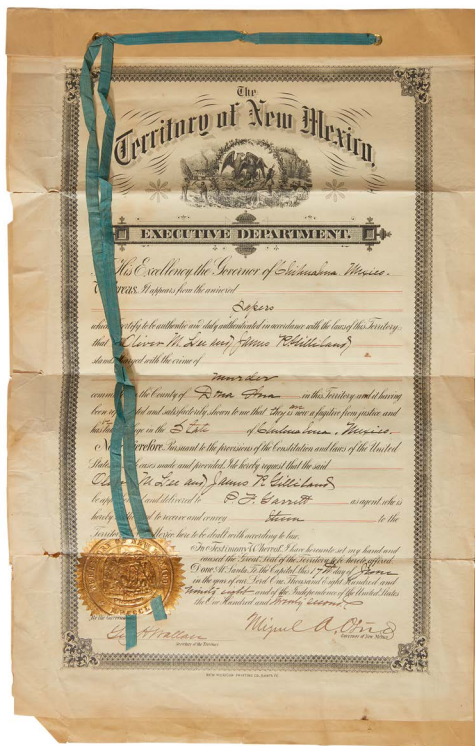 The
Territory of New Mexico,
EXECUTIVE DEPARTMENT.
His Excellency, the Governor of Chihuahua Mexico.
Whereas, It appears from the annexed
Papers
which I certify to be authentic and duly authenticated in accordance with the laws of this Territory,
that Oliver M. Lee and James R Gilliland
stand charged with the crime of
Murder
committed in the County of Dona Ana in this Territory, and it having
been represented and satisfactorily shown to me that they is now a fugitive from justice and
has taken refuge in the State of Chihuahua, Mexico.
Now Therefore, Pursuant to the provisions of the Constitution and laws of the United
States in such cases made and provided, I do hereby request that the said
Oliver M. Lee and James R. Gilliland
be apprehended and delivered to P. F. Garrett as agent, who is
hereby authorized to receive and convey them to the
Territory of New Mexico, here to be dealt with according to law.
In Testimony Whereof, I have hereunto set my hand and
caused the Great Seal of the Territory to be hereto affixed.
Done at Santa Fe the Capital, this 17th day of June
in the year of our Lord One Thousand Eight Hundred and
Ninety eight and of the Independence of the United States
the One Hundred and twenty second.
By the Governor
Geo H Wallace
Secretary of the Territory
Miguel A. Otero
Governor of New Mexico
NEW MEXICAN PRINTING CO. SANTA FE